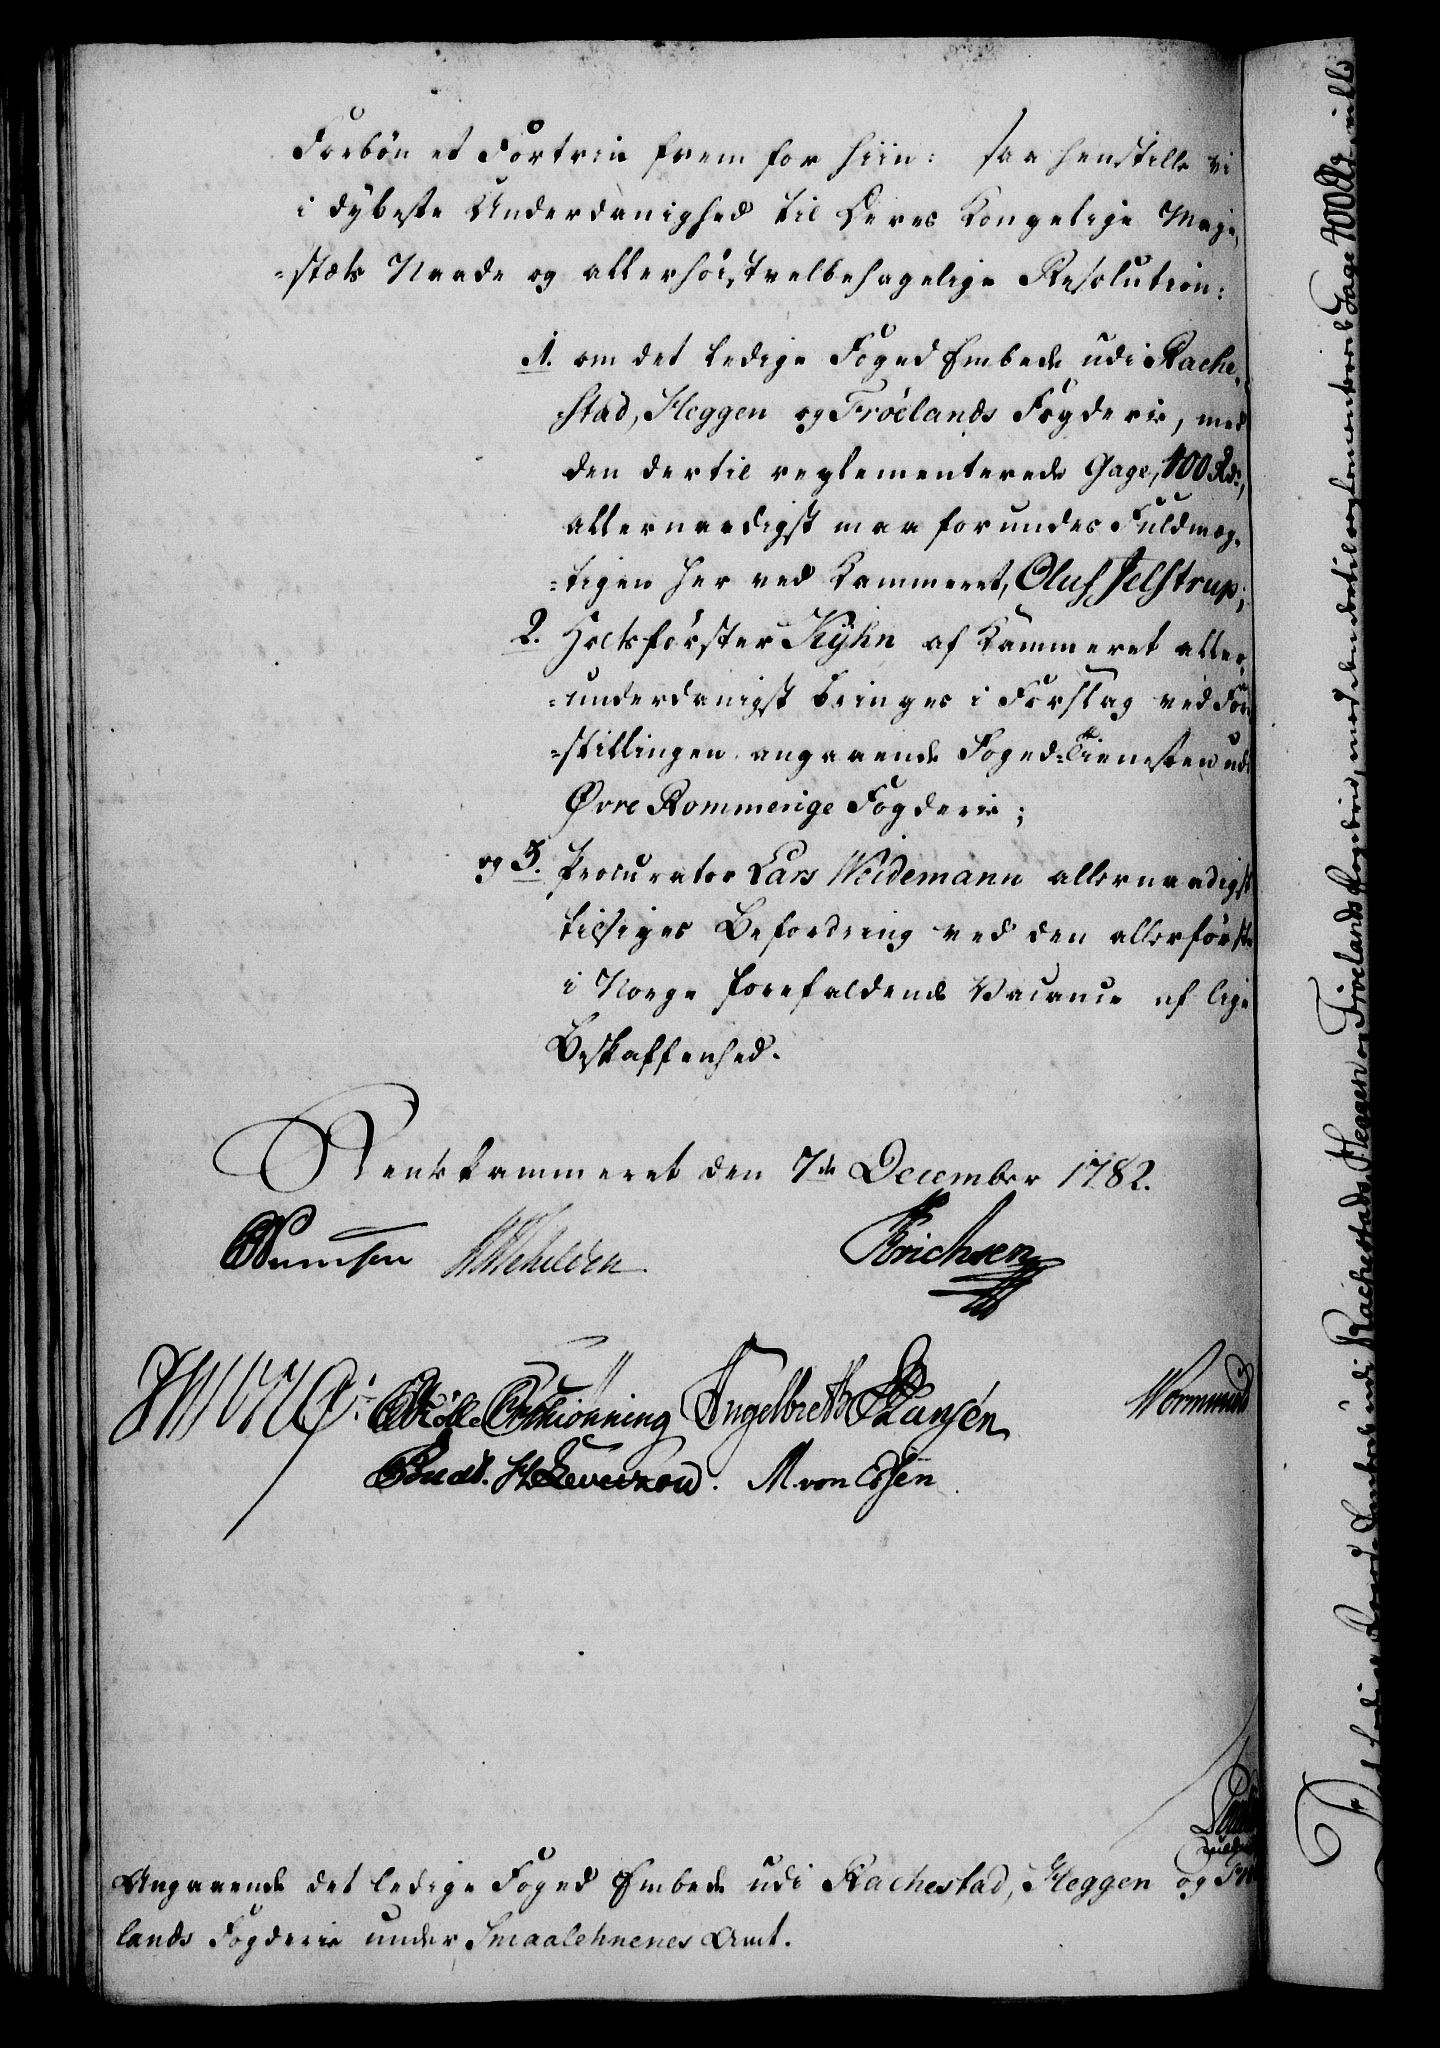 Forbön et Fortrin frem for hiin: saa henstille vi
i dybeste Underdanighed til Deres Kongelige Maje-
-stæts Naade og allerhöistvelbehagelige Resolution:
1. om det ledige Foged Embede udi Rache-
-stad, Heggen og Fröelands Fogderie, med
den dertil reglementerede Gage, 400 Rdr,
allernaadigst maa forundes Fuldmæg-
-tigen her ved Kammeret, Oluf Jelstrup;
2. Holtsförster Kÿhn af Kammeret aller-
-underdanigst bringes i Forslag ved Fore-
-stillingen angaaende Foged-Tienesten udi
Øvre Rommerige Fogderie;
og 3. Procurator Lars Weidemann allernaadigst
tilsiges Befordring ved den allerförste
i Norge forefaldende Vacance af lige
Beskaffenhed.
Rentekammeret den 7de December 1782.
Erichsen
Schiönning Engelbreth Hansén Wormund
Levetzow. M von Essen
Angaaende det ledige Foged Embede udi Rachestad, Heggen og Frö-
lands Fogderie under Smaalehnenes Amt.
Foged Embede udi Rachestads, Heggen og Fröelands Fogderie, med den dertil reglementerede Gage 400 Rdr, ville